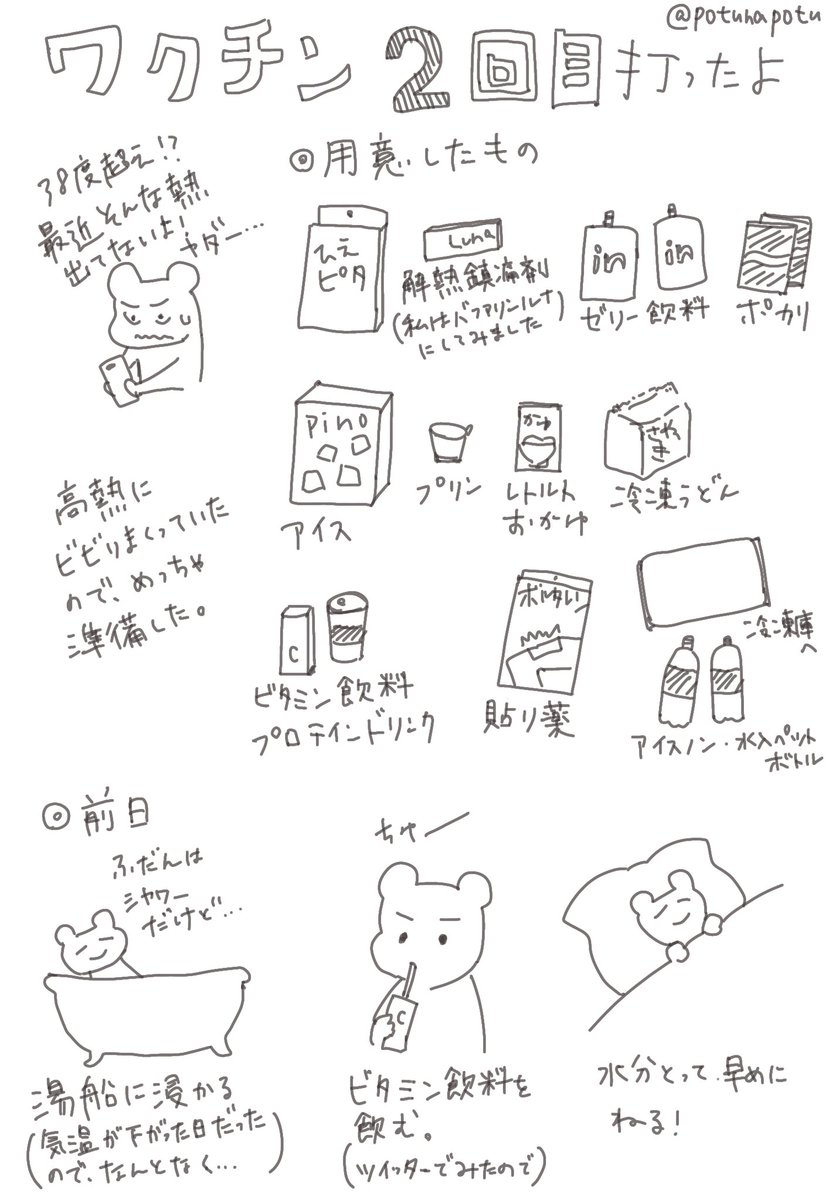 @potunapotu
ワクチン2回目打ったよ
38度超え!?
最近そんな熱
出てないよ!
ヤダー…
◎用意したもの
ひえ
ピタ
Luna
解熱鎮痛剤
(私はバファリンルナ
にしてみました)
in
in
ゼリー飲料
ポカリ
高熱に
ビビりまくっていた
ので、めっちゃ
準備した。
pino
アイス
プリン
かゆ
レトルト
おかゆ
さぬ
き
冷凍うどん
C
ビタミン飲料
プロテインドリンク
ボルタレン
貼り薬
冷凍庫
へ
アイスノン・水入ペット
ボトル
◎前日
ふだんは
シャワー
だけど…
湯船に浸かる
(気温が下がった日だった
ので、なんとなく…)
ちゅー
C
ビタミン飲料を
飲む。
(ツイッターでみたので)
水分とって、早めに
ねる!